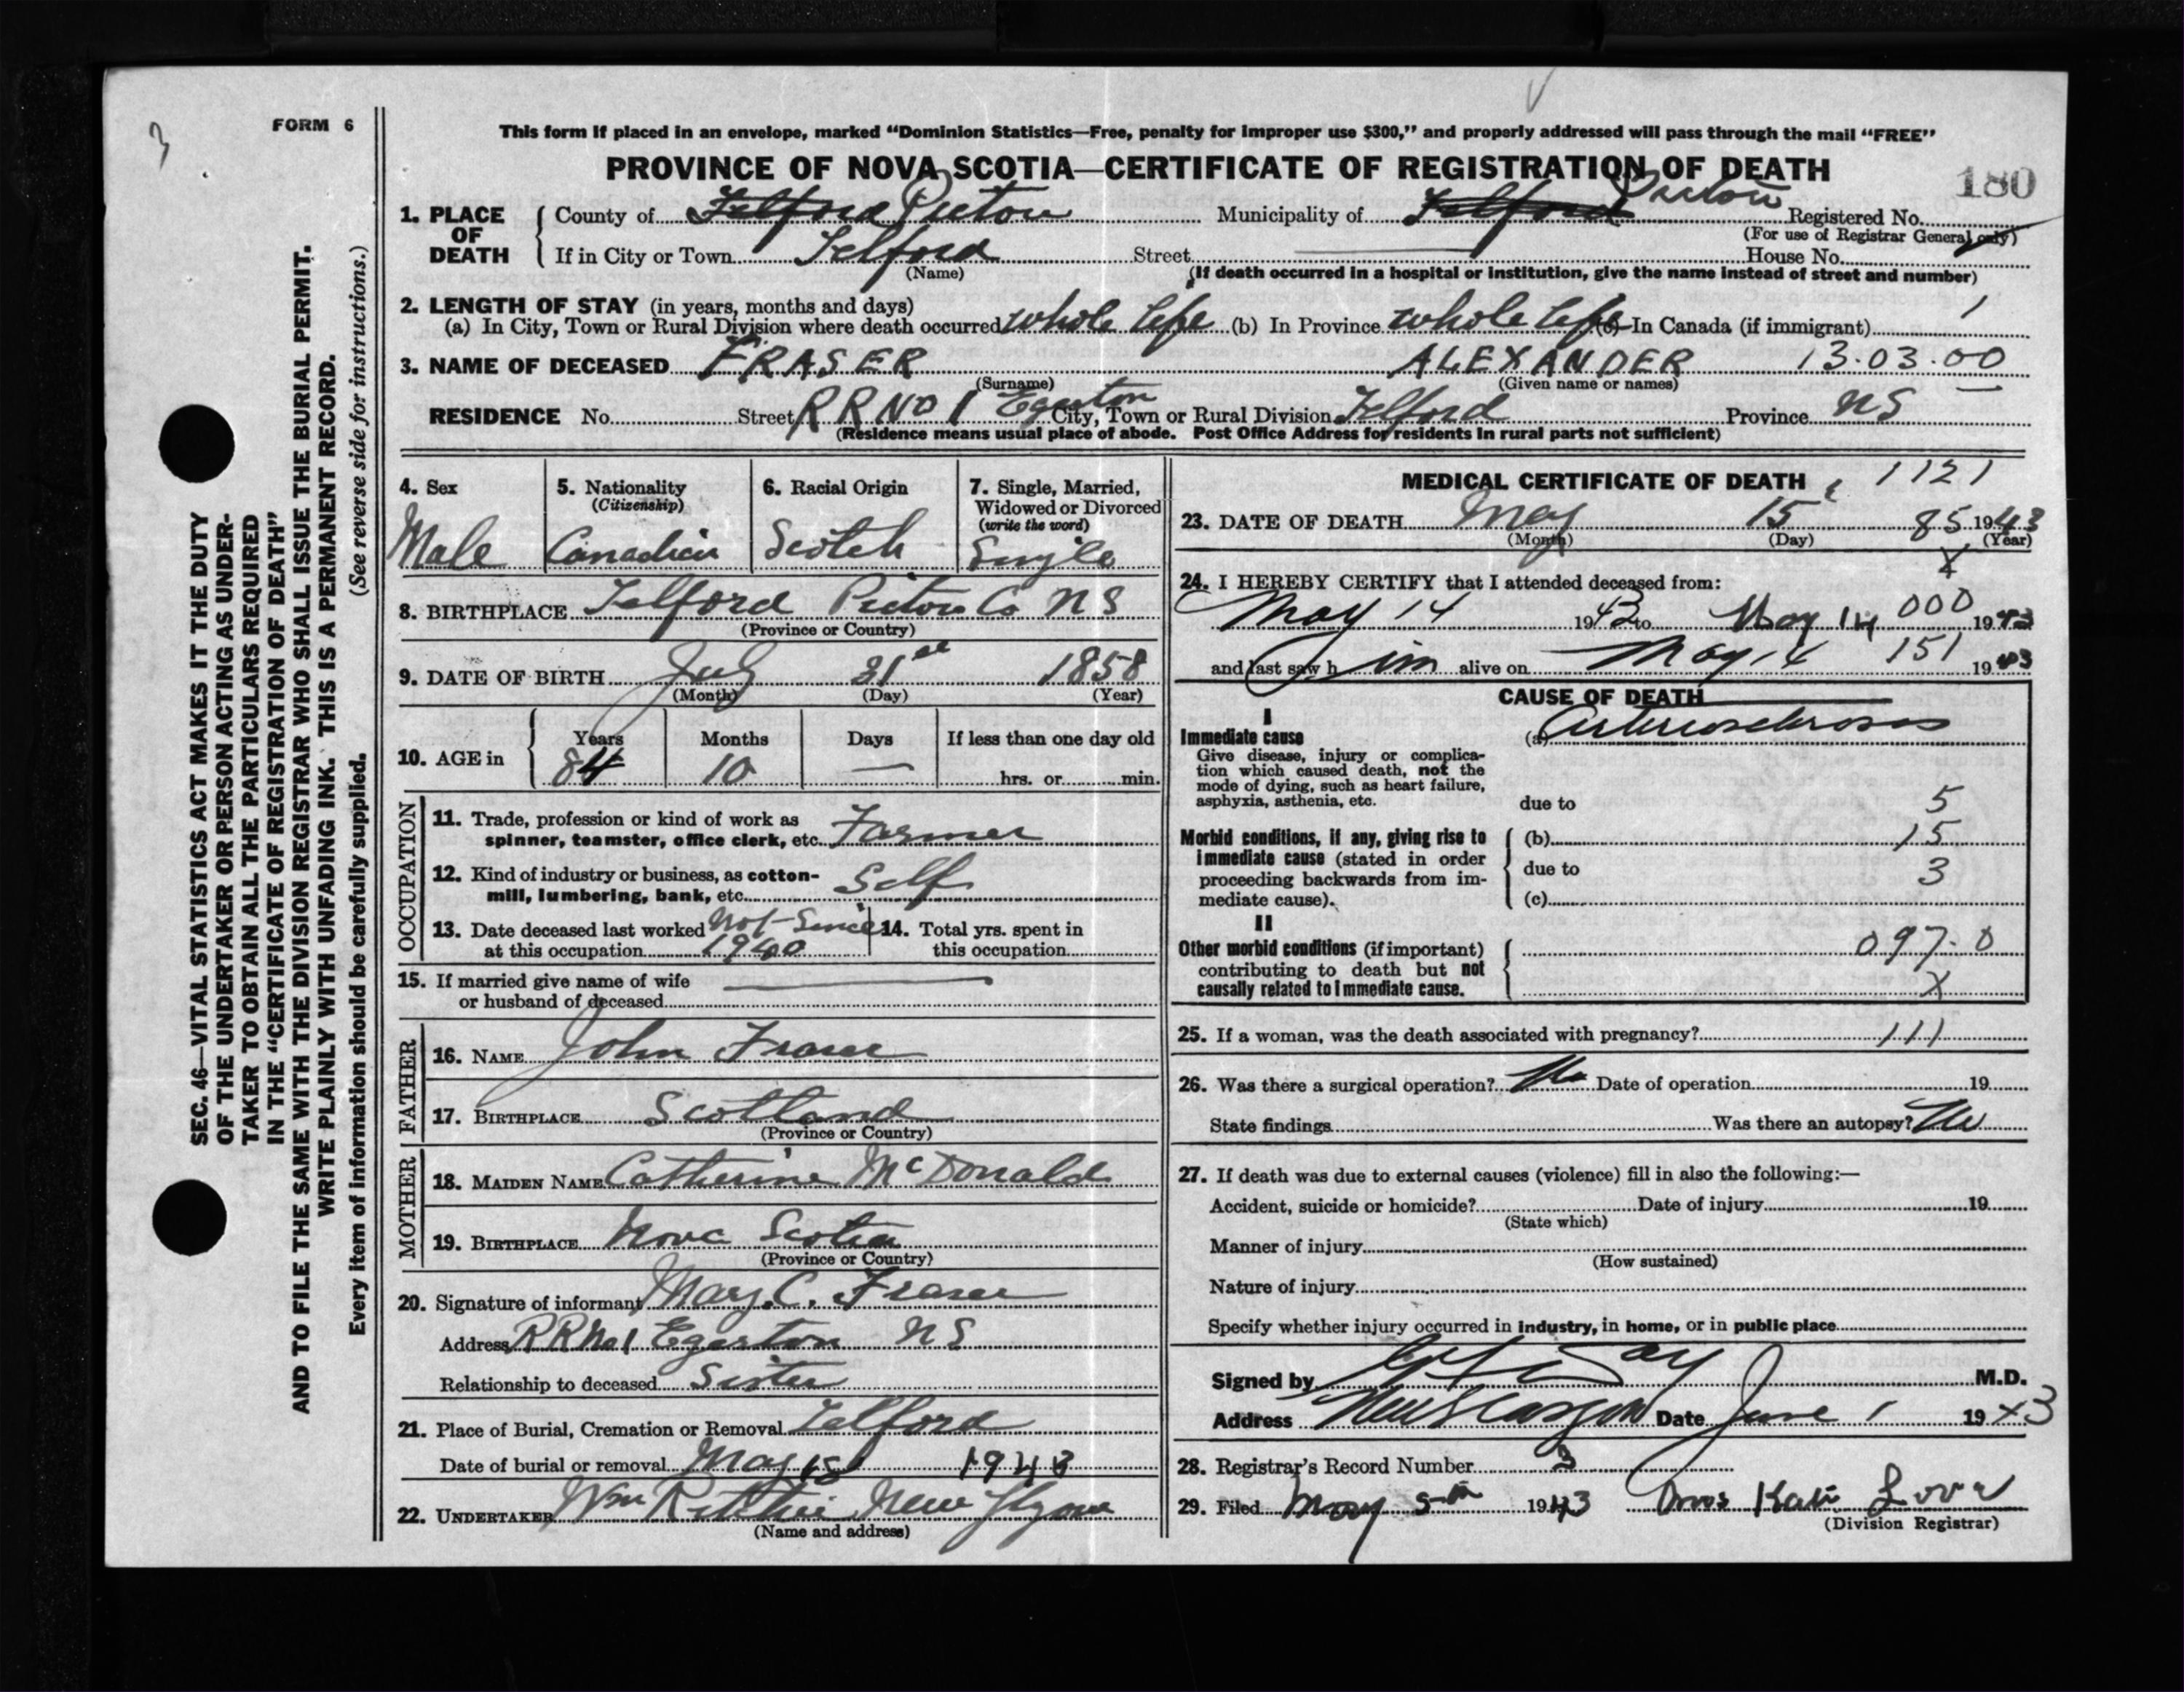 3
FORM 6
SEC. 46—VITAL STATISTICS ACT MAKES IT THE DUTY
OF THE UNDERTAKER OR PERSON ACTING AS UNDER-
TAKER TO OBTAIN ALL THE PARTICULARS REQUIRED
IN THE "CERTIFICATE OF REGISTRATION OF DEATH"
AND TO FILE THE SAME WITH THE DIVISION REGISTRAR WHO SHALL ISSUE THE BURIAL PERMIT.
WRITE PLAINLY WITH UNFADING INK. THIS IS A PERMANENT RECORD.
Every item of information should be carefully supplied. (See reverse side for instructions.)
This form if placed in an envelope, marked "Dominion Statistics—Free, penalty for improper use $300," and properly addressed will pass through the mail "FREE"
PROVINCE OF NOVA SCOTIA—CERTIFICATE OF REGISTRATION OF DEATH
180
1. PLACE OF DEATH County of Telford Pictou Municipality of Telford Pictou Registered No.
(For use of Registrar General only)
If in City or Town Telford Street House No.
(Name)
(If death occurred in a hospital or institution, give the name instead of street and number)
2. LENGTH OF STAY (in years, months and days)
(a) In City, Town or Rural Division where death occurred whole life (b) In Province whole life (c) In Canada (if immigrant) 1
3. NAME OF DECEASED FRASER ALEXANDER 13.03.00
(Surname) (Given name or names)
RESIDENCE No. Street RR No 1 Egerton City, Town or Rural Division Telford Province NS
(Residence means usual place of abode. Post Office Address for residents in rural parts not sufficient)
4. Sex 5. Nationality 6. Racial Origin 7. Single, Married,
(Citizenship) Widowed or Divorced
(write the word)
Male Canadian Scotch Single
8. BIRTHPLACE Telford Pictou Co NS
(Province or Country)
9. DATE OF BIRTH July 31st 1858
(Month) (Day) (Year)
10. AGE in Years Months Days If less than one day old
84 10 — hrs. or min.
OCCUPATION
11. Trade, profession or kind of work as
spinner, teamster, office clerk, etc. Farmer
12. Kind of industry or business, as cotton-
mill, lumbering, bank, etc. Self
13. Date deceased last worked Not Since 14. Total yrs. spent in
at this occupation 1940 this occupation
15. If married give name of wife
or husband of deceased
FATHER
16. NAME John Fraser
17. BIRTHPLACE Scotland
(Province or Country)
MOTHER
18. MAIDEN NAME Catherine McDonald
19. BIRTHPLACE Nova Scotia
(Province or Country)
20. Signature of informant Mary C. Fraser
Address RR No 1 Egerton NS
Relationship to deceased Sister
21. Place of Burial, Cremation or Removal Telford
Date of burial or removal May 1943
22. UNDERTAKER Wm Ritchie New
(Name and address)
MEDICAL CERTIFICATE OF DEATH 1121
23. DATE OF DEATH May 15 85 1943
(Month) (Day) (Year)
X
24. I HEREBY CERTIFY that I attended deceased from:
May 14 1943 to May 14 000 1943
and last saw him alive on May 14 151 1943
CAUSE OF DEATH
I
Immediate cause (a) Arteriosclerosis
Give disease, injury or complica-
tion which caused death, not the
mode of dying, such as heart failure,
asphyxia, asthenia, etc.
due to 5
Morbid conditions, if any, giving rise to (b) 15
immediate cause (stated in order
proceeding backwards from im- due to 3
mediate cause). (c)
II
Other morbid conditions (if important) 097.0
contributing to death but not
causally related to immediate cause. X
25. If a woman, was the death associated with pregnancy? 111
26. Was there a surgical operation? No Date of operation 19
State findings Was there an autopsy? No
27. If death was due to external causes (violence) fill in also the following:—
Accident, suicide or homicide? Date of injury 19
(State which)
Manner of injury
(How sustained)
Nature of injury
Specify whether injury occurred in industry, in home, or in public place
Signed by M.D.
Address New Glasgow Date June 1 1943
28. Registrar's Record Number 3
29. Filed May 1943 Mrs Kate Love
(Division Registrar)